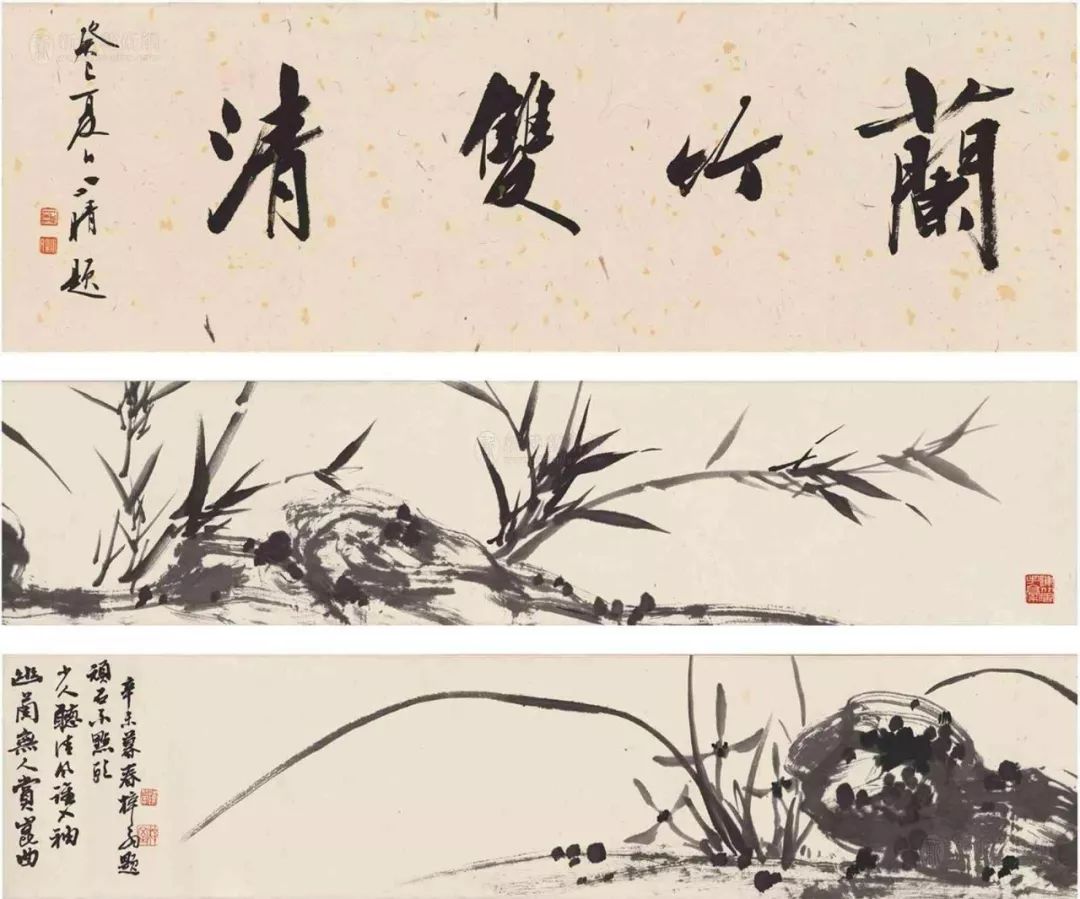 蘭竹雙清
癸巳夏日 晴題
幽蘭無人賞崑曲
少人聽清風誰入袖
頑石不點頭
辛未暮春梓翁題